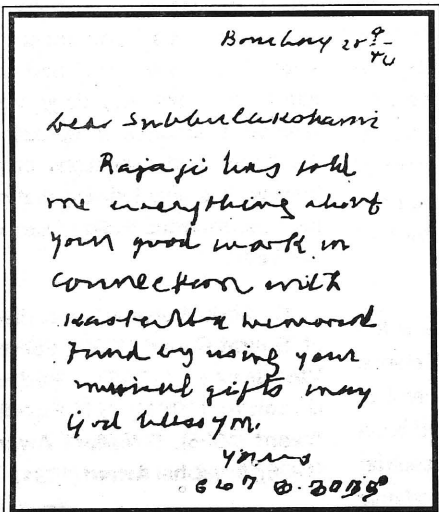 Bombay
Dear Subbulakshami
Rajaji has told
me everything about
your good work in
connection with
Kasturba memorial
Fund by using your
musical gifts may
God bless you.
yours